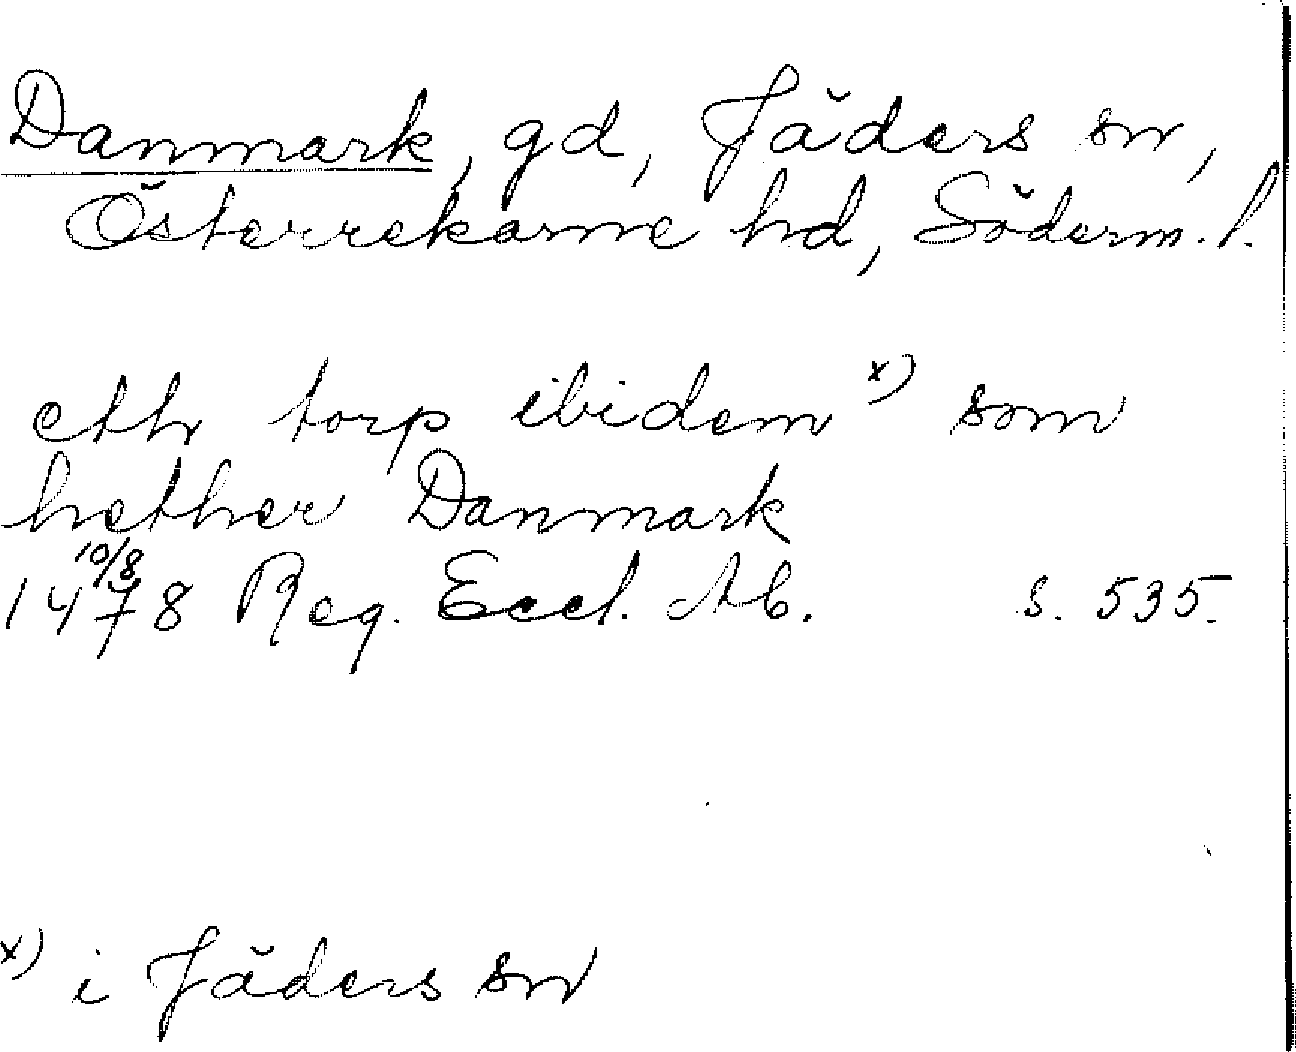 Danmark, gd, Jäders sn,
Österrekarne hd, Söderm. l.
eth torp ibidem x) som
hether Danmark
10/8
1478 Reg. Eccl. Ab. s. 535.
x) i Jäders sn